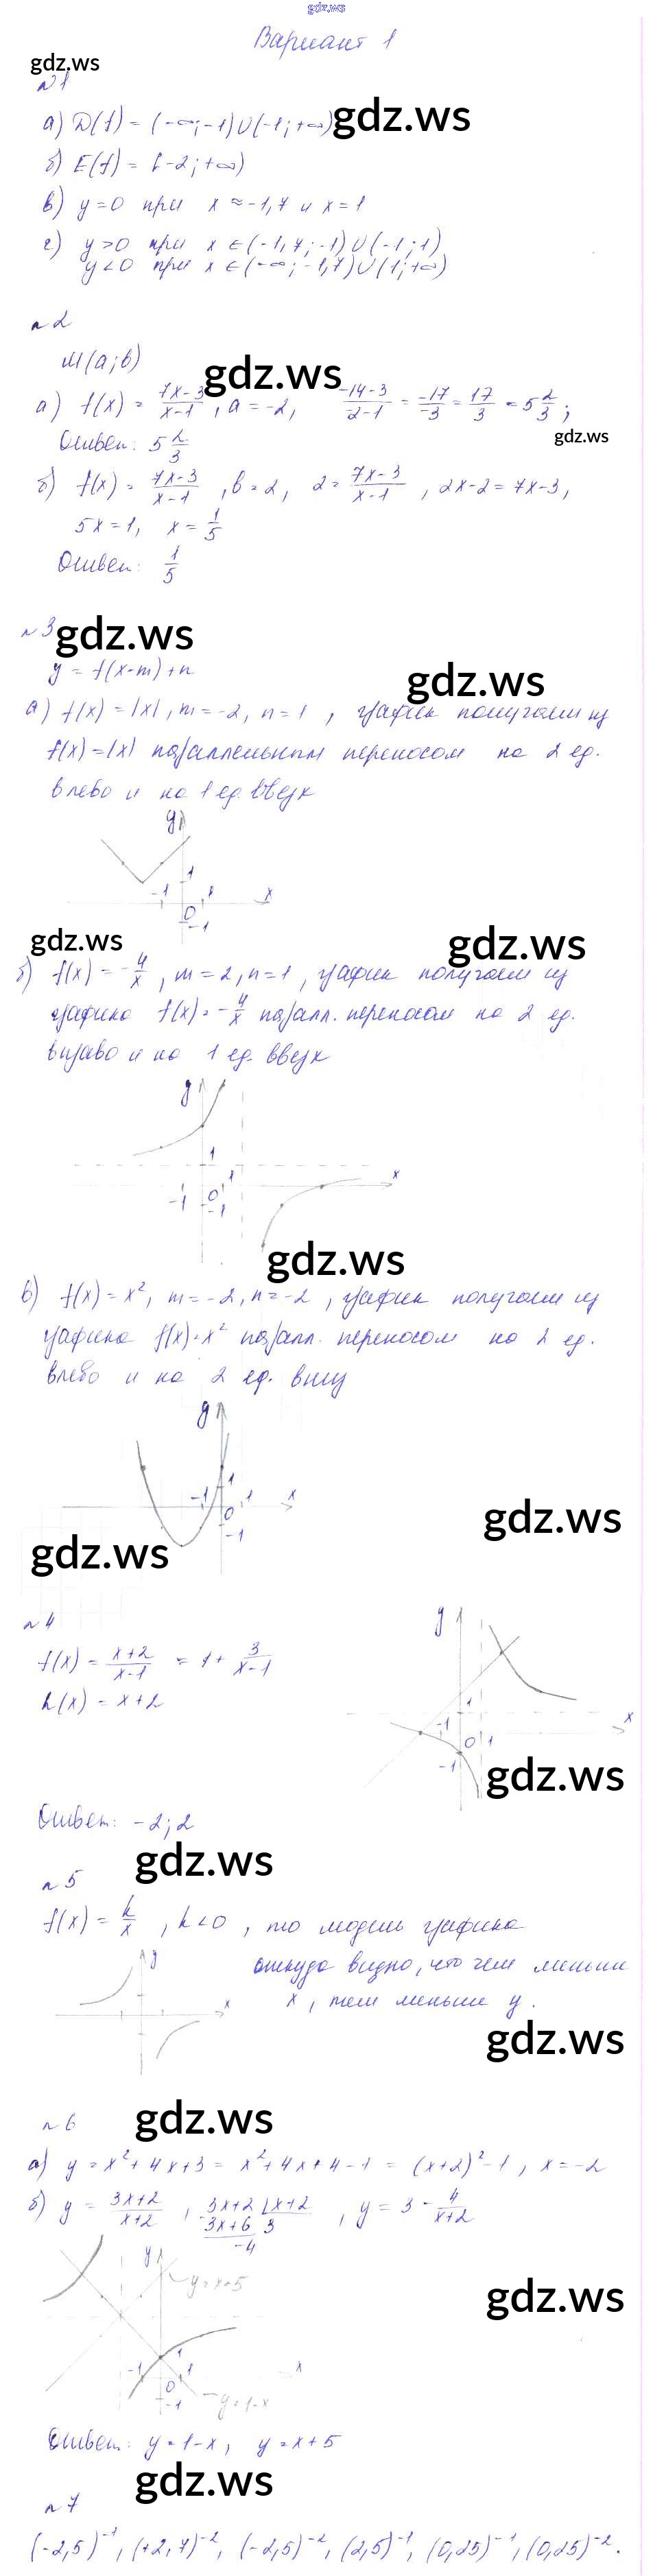 gdz.ws
Вариант 1
gdz.ws
№1
а) D(f) = (-∞; -1)∪(-1; +∞)
gdz.ws
б) E(f) = [-2; +∞)
в) y=0 при x ≈ -1,7 и x=1
г) y>0 при x ∈ (-1,7; -1)∪(-1; 1)
y<0 при x ∈ (-∞; -1,7)∪(1; +∞)
№2
M(a; b)
gdz.ws
а) f(x) = (7x-3)/(x-1), a = -2, (-14-3)/(-2-1) = (-17)/(-3) = 17/3 = 5 2/3;
Ответ: 5 2/3
gdz.ws
б) f(x) = (7x-3)/(x-1), b=2, 2 = (7x-3)/(x-1), 2x-2 = 7x-3,
5x=1, x = 1/5
Ответ: 1/5
№3
gdz.ws
y = f(x-m)+n
gdz.ws
а) f(x) = |x|, m = -2, n = 1, график получаем из
f(x) = |x| параллельным переносом на 2 ед.
влево и на 1 ед. вверх
y
1
-1 1 x
0
-1
gdz.ws
gdz.ws
б) f(x) = -4/x, m = 2, n = 1, график получаем из
графика f(x) = -4/x паралл. переносом на 2 ед.
вправо и на 1 ед. вверх
y
1
-1 0 1 x
-1
gdz.ws
в) f(x) = x², m = -2, n = -2, график получаем из
графика f(x) = x² паралл. переносом на 2 ед.
влево и на 2 ед. вниз
y
1
-1 0 1 x
-1
gdz.ws
gdz.ws
№4
f(x) = (x+2)/(x-1) = 1 + 3/(x-1)
h(x) = x+2
y
1
-1 0 1 x
-1
gdz.ws
Ответ: -2; 2
gdz.ws
№5
f(x) = k/x, k<0, то модель графика
откуда видно, что чем меньше
x, тем меньше y.
y
x
gdz.ws
gdz.ws
№6
а) y = x²+4x+3 = x²+4x+4-1 = (x+2)²-1, x = -2
б) y = (3x+2)/(x+2), 3x+2 | x+2
3x+6 3
-4
, y = 3 - 4/(x+2)
y
y=x+5
gdz.ws
1
-1 0 1 x
-1
y=1-x
Ответ: y=1-x, y=x+5
gdz.ws
№7
(-2,5)⁻¹, (+2,7)⁻², (-2,5)⁻², (2,5)⁻¹, (0,25)⁻¹, (0,25)⁻².